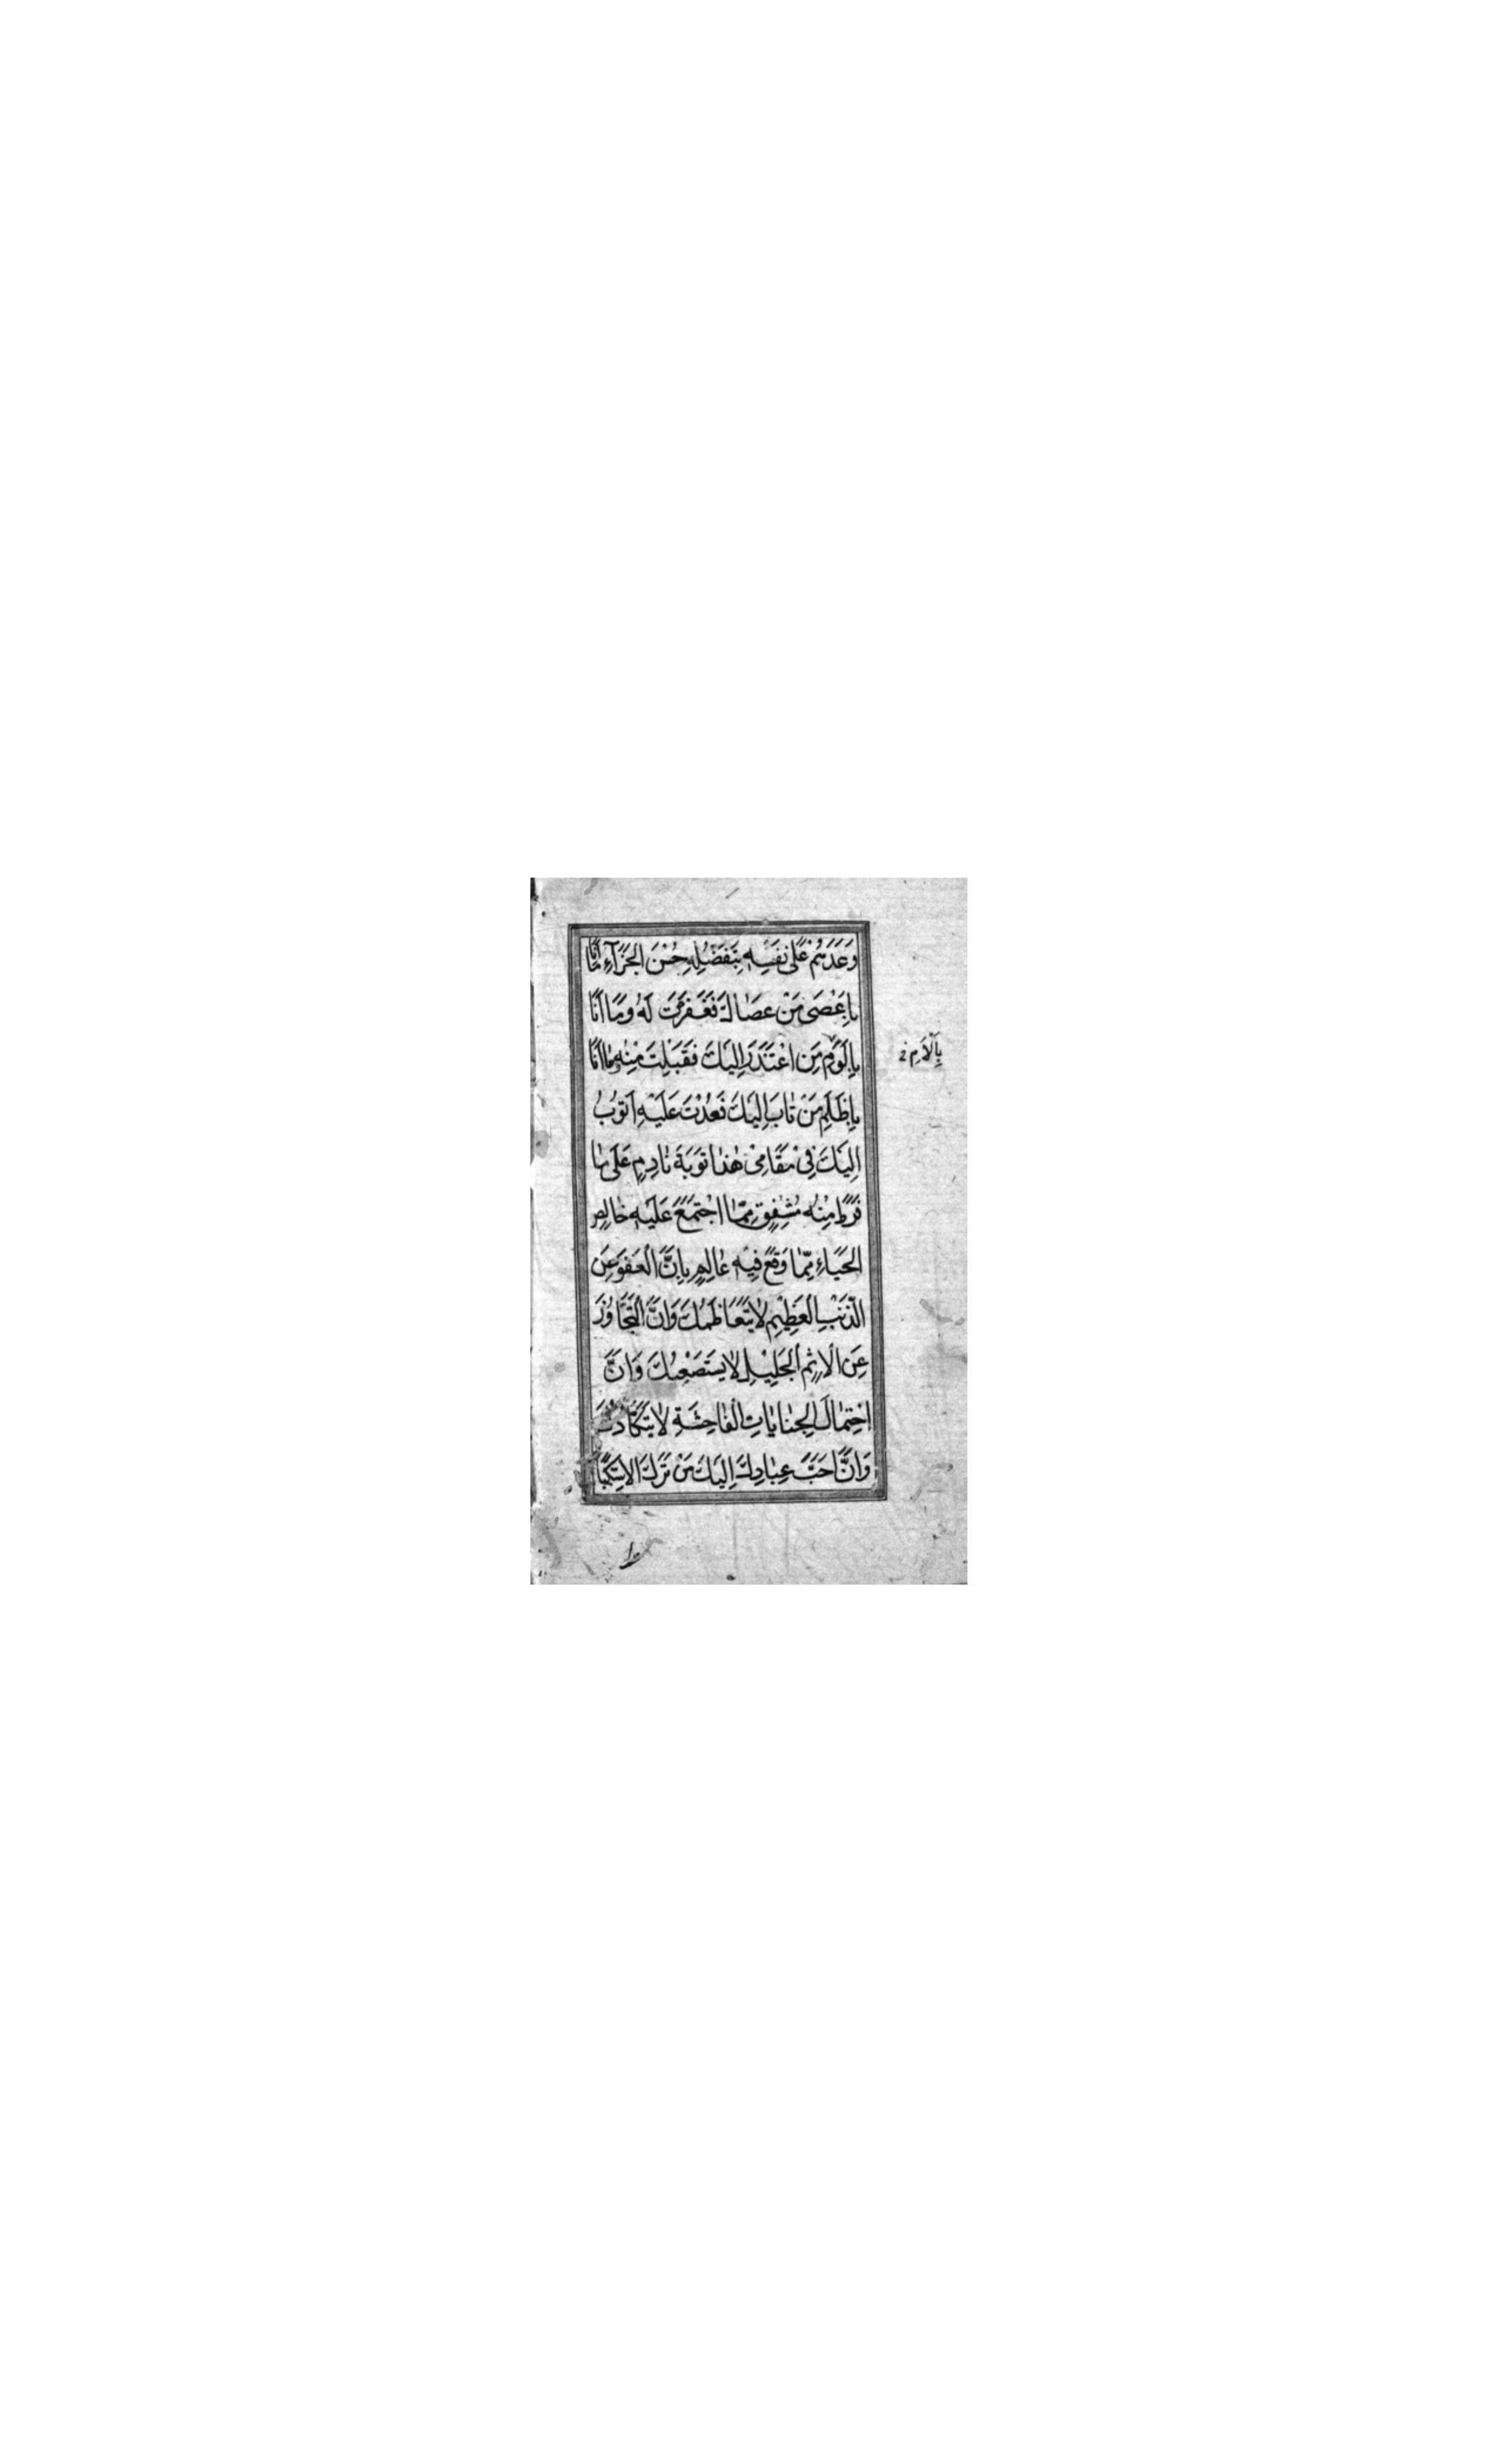 وَعَدَهُمْ عَلٰى نَفْسِهِ بِتَفَضُّلِهِ حُسْنَ الْجَزَآءِ مَا اَنَا
بِاَعْصٰى مَنْ عَصَاكَ فَغَفَرْتَ لَهُ وَمَا اَنَا
بِاَلْوَمِ مَنِ اعْتَذَرَ اِلَيْكَ فَقَبِلْتَ مِنْهُ وَمَا اَنَا
بِاَظْلَمِ مَنْ تَابَ اِلَيْكَ فَعُدْتَ عَلَيْهِ اَتُوبُ
اِلَيْكَ فِىْ مَقَامِىْ هٰذَا تَوْبَةَ نَادِمٍ عَلٰى مَا
فَرَطَ مِنْهُ مُشْفِقٍ مِمَّا اجْتَمَعَ عَلَيْهِ خَالِصِ
الْحَيَاءِ مِمَّا وَقَعَ فِيْهِ عَالِمٍ بِاَنَّ الْعَفْوَ عَنِ
الذَّنْبِ الْعَظِيْمِ لَا يَتَعَاظَمُكَ وَاَنَّ التَّجَاوُزَ
عَنِ الْاِثْمِ الْجَلِيْلِ لَا يَسْتَصْعِبُكَ وَاَنَّ
احْتِمَالَ الْجِنَايَاتِ الْفَاحِشَةِ لَا يَتَكَاَّدُكَ
وَاَنَّ اَحَبَّ عِبَادِكَ اِلَيْكَ مَنْ تَرَكَ الْاِسْتِكْبَا
بِاَلْاَمِ
١٠